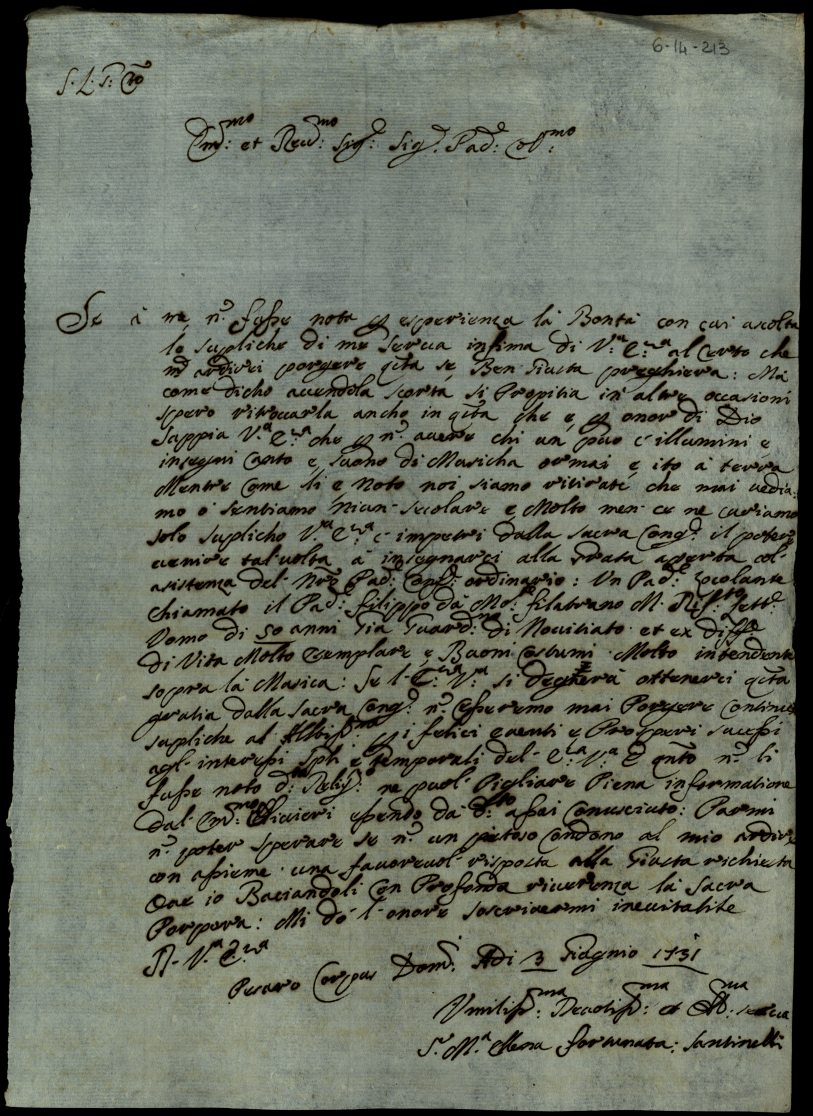 6-14-213
S. L. S: Cto
Emo: et Revmo: Sigr: Sigr: Pad: Obmo:
Se à me n: fusse nota p esperienza là Bontà con cui ascolta
lè supliche di me Serva infima di V.a E.za al certo che
nō ardirei porgere qsta se Ben Giusta preghiera: Mà
come dicho avendola scorta si Propitia in altre occasioni
spero ritrovarla ancho in qsta che è p onor di Dio
Sappia V.a E.za che p n: avere chi un puo c'illumini è
insegni Canto è Suono di Musicha ormai è ito à terra
Mentre Come li è Noto noi siamo ritirate che mai vedia:
mo o sentiamo niun Secolare è Molto men ce ne curiamo
solo suplicho V.a E.za c'impetri dalla Sacra Cong: il poter
venire tal volta à insegnarci alla Grata aperta col
asistenza del Nro Pad: Conf: ordinario: Un Pad: Zocolante
chiamato il Pad: Filippo dà Mo: Filatrano M. Rif:to Sett:
Uomo di 50 anni Già Guard:no di Novitiato et ex diff:re
di Vita Molto Esemplare è Buoni Costumi Molto intendente
sopra là Musica: Se l'E.za V.a si degnerà ottenerci qsta
gratia dalla Sacra Cong: n: Cesseremo mai Porgere Continue
supliche al Altissmo p i felici eventi è Prosperi sucessi
agl'interessi Spli è temporali del E.za V.a È qnto n: li
fusse noto d: Relig: ne puol Pigliare Piena informatione
dal Emo: Olivieri essendo dà d:to assai Conusciuto: Parmi
n: poter sperare se n: un pietoso Condono al mio ardire
con assieme una favorevol risposta alla Giusta richiesta
Ove io Baciandoli Con Profonda riverenza là Sacra
Porpora: Mi dò l'onore soscrivermi inevitabile
D. V.a E.za
Pesaro Corpus Dom: Adi 3 Giugnio 1731
Umilissma: Devotissma: et Obma: serva
Sr M.a Elena Fortunata: Santinelli